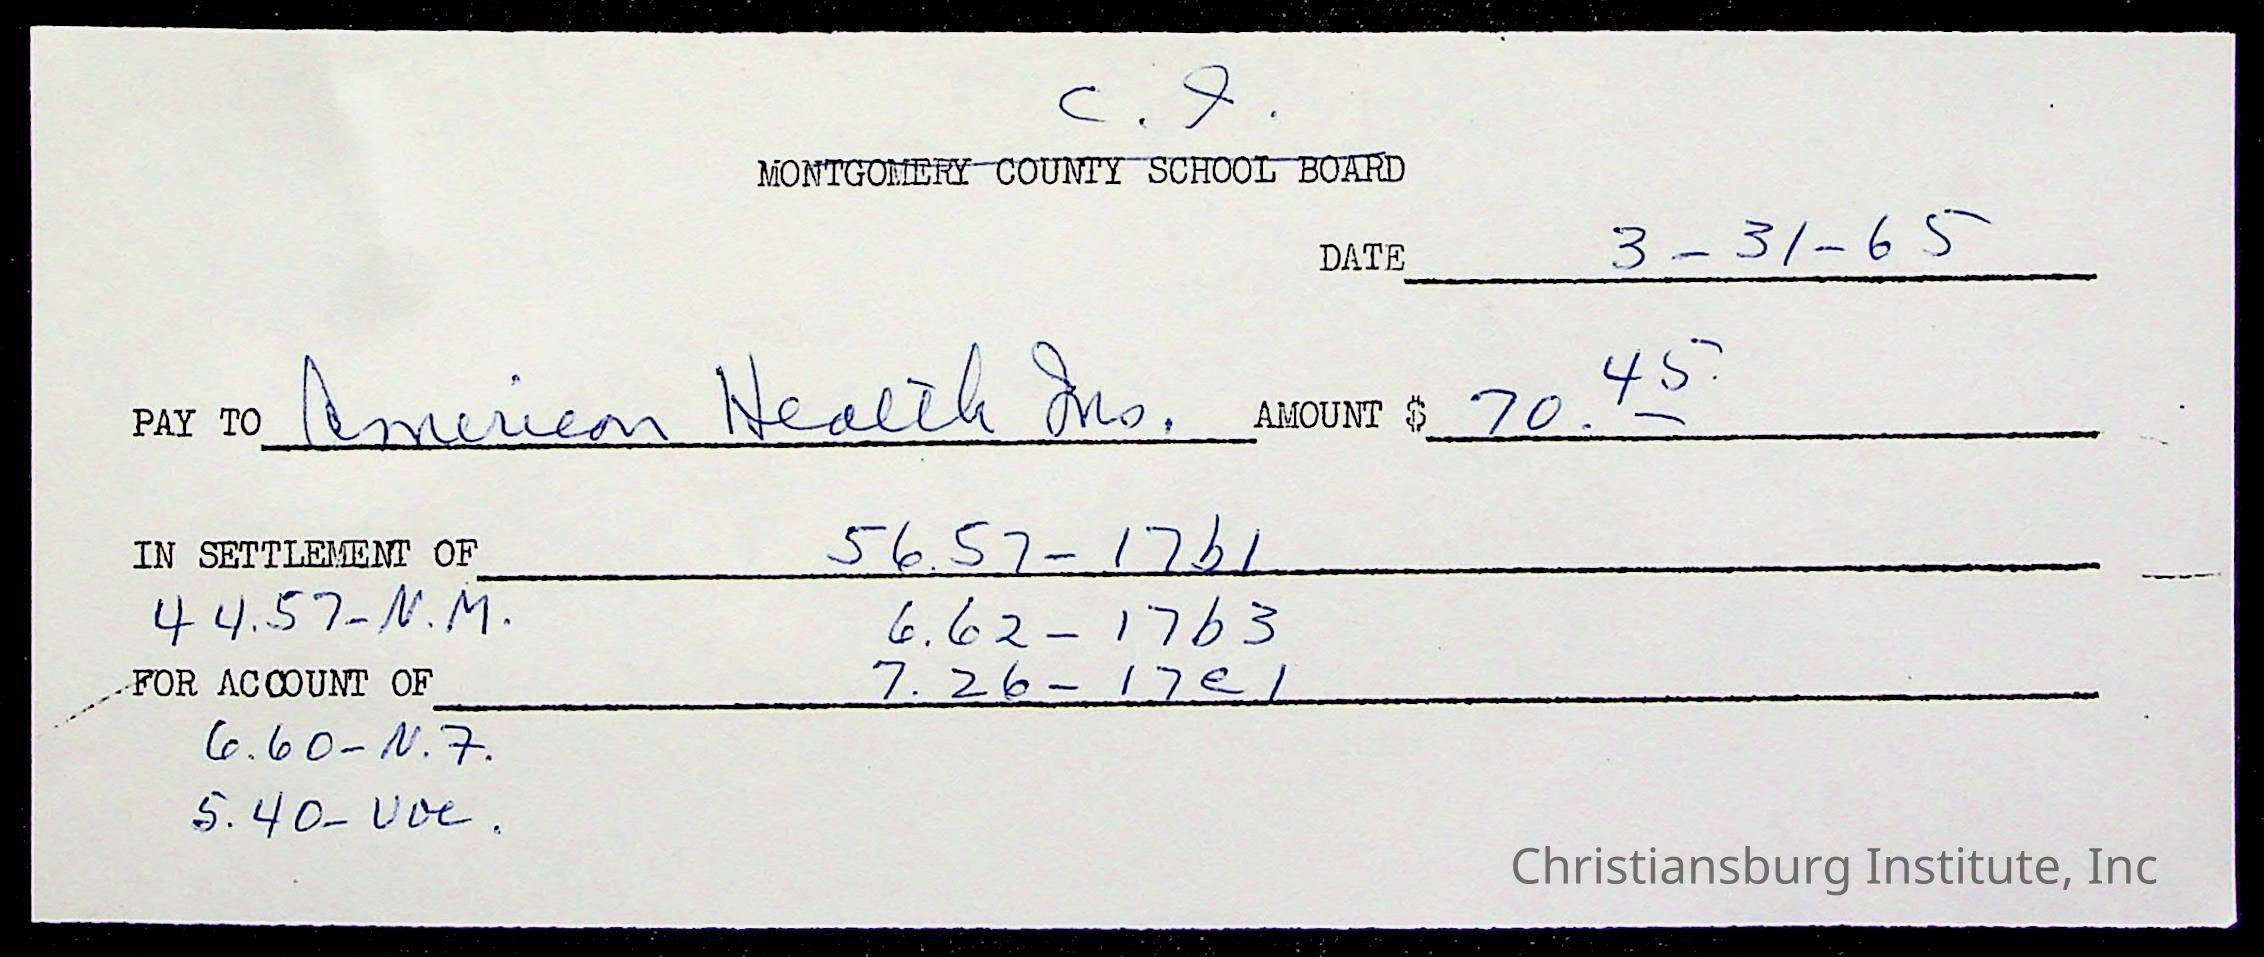 C. I.
MONTGOMERY COUNTY SCHOOL BOARD
DATE 3-31-65
PAY TO American Health Ins. AMOUNT $ 70.45
IN SETTLEMENT OF 56.57-17b1
44.57-N.M. 6.62-17b3
FOR ACCOUNT OF 7.26-17e1
6.60-N.F.
5.40-Voc.
Christiansburg Institute, Inc